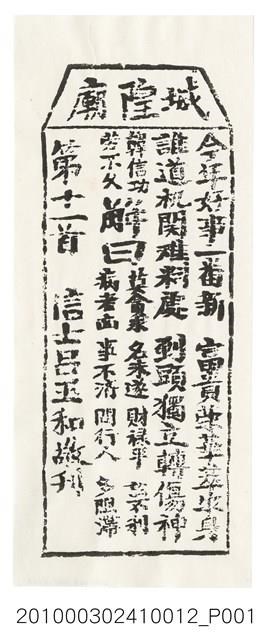 城隍廟
今年好事一番新 富貴榮華萃汝身
誰道机関难料處 到頭獨立轉傷神
韓信功
劳不久
解曰
莫貪求 名未遂 財禄平 訟不利
病者凶 事不济 問行人 多阻滞
第十一首 信士呂玉和敬刊
201000302410012_P001